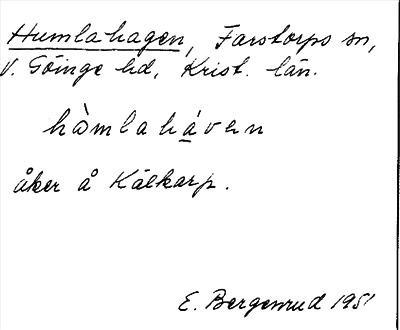 Humlahagen, Farstorps sn,
V. Göinge hd, Krist. län.
hàmlahávan
åker å Kälkarp.
E. Bergenrud 1951